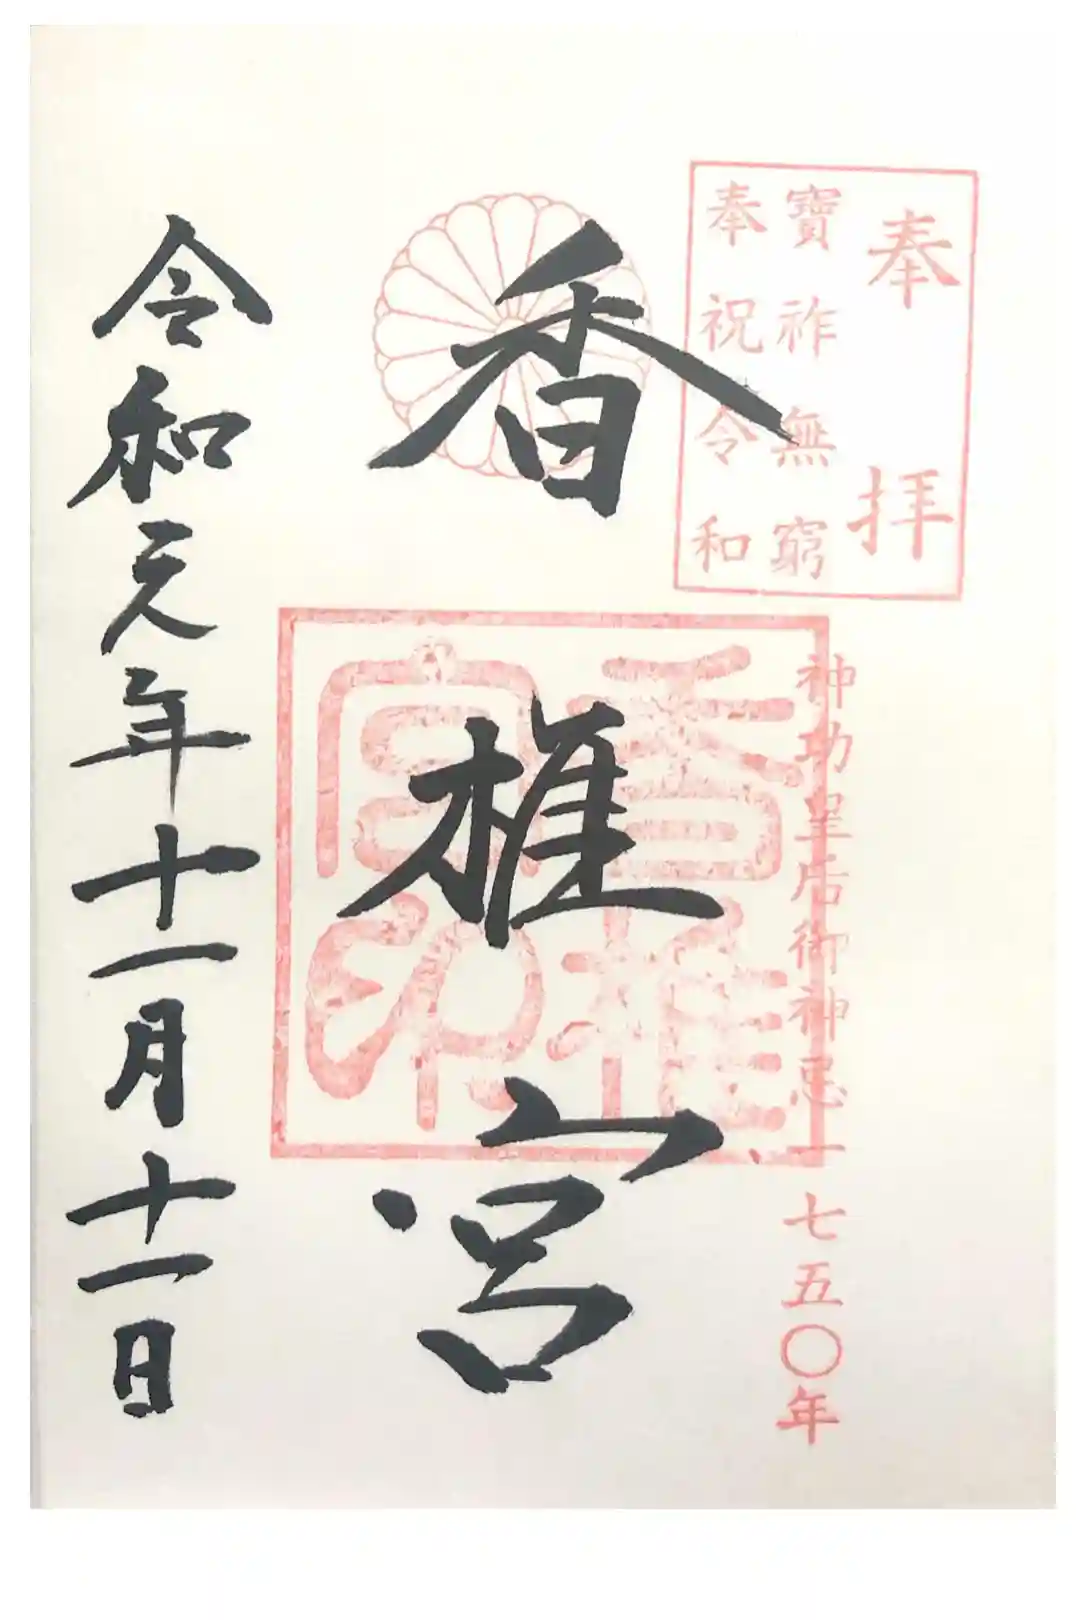 奉拝
寶祚無窮
奉祝令和
神功皇后御神忌一七五〇年
香椎宮
香椎宮印
令和元年十一月十一日